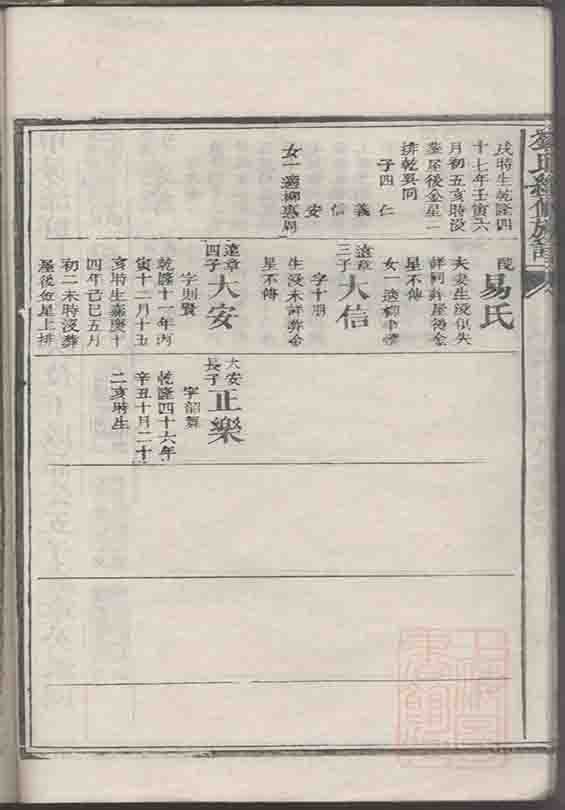 戌時生乾隆四
十七年壬寅六
月初五亥時没
葬屋後金星一
排乾巽同
子四 仁
義
信
安
女一適柳惠周
配
易氏
夫妻生没似失
詳同葬屋後金
星不傳
女一適柳
遠章
三子
大信
字十朋
生没未詳葬金
星不傳
遠章
四子
大安
字則賢
乾隆十一年丙
寅十二月十五
亥時生嘉慶十
四年己巳五月
初二未時没葬
屋後金星上排
大安
長子
正樂
字韶舞
乾隆四十六年
辛丑十月二十
二亥時生